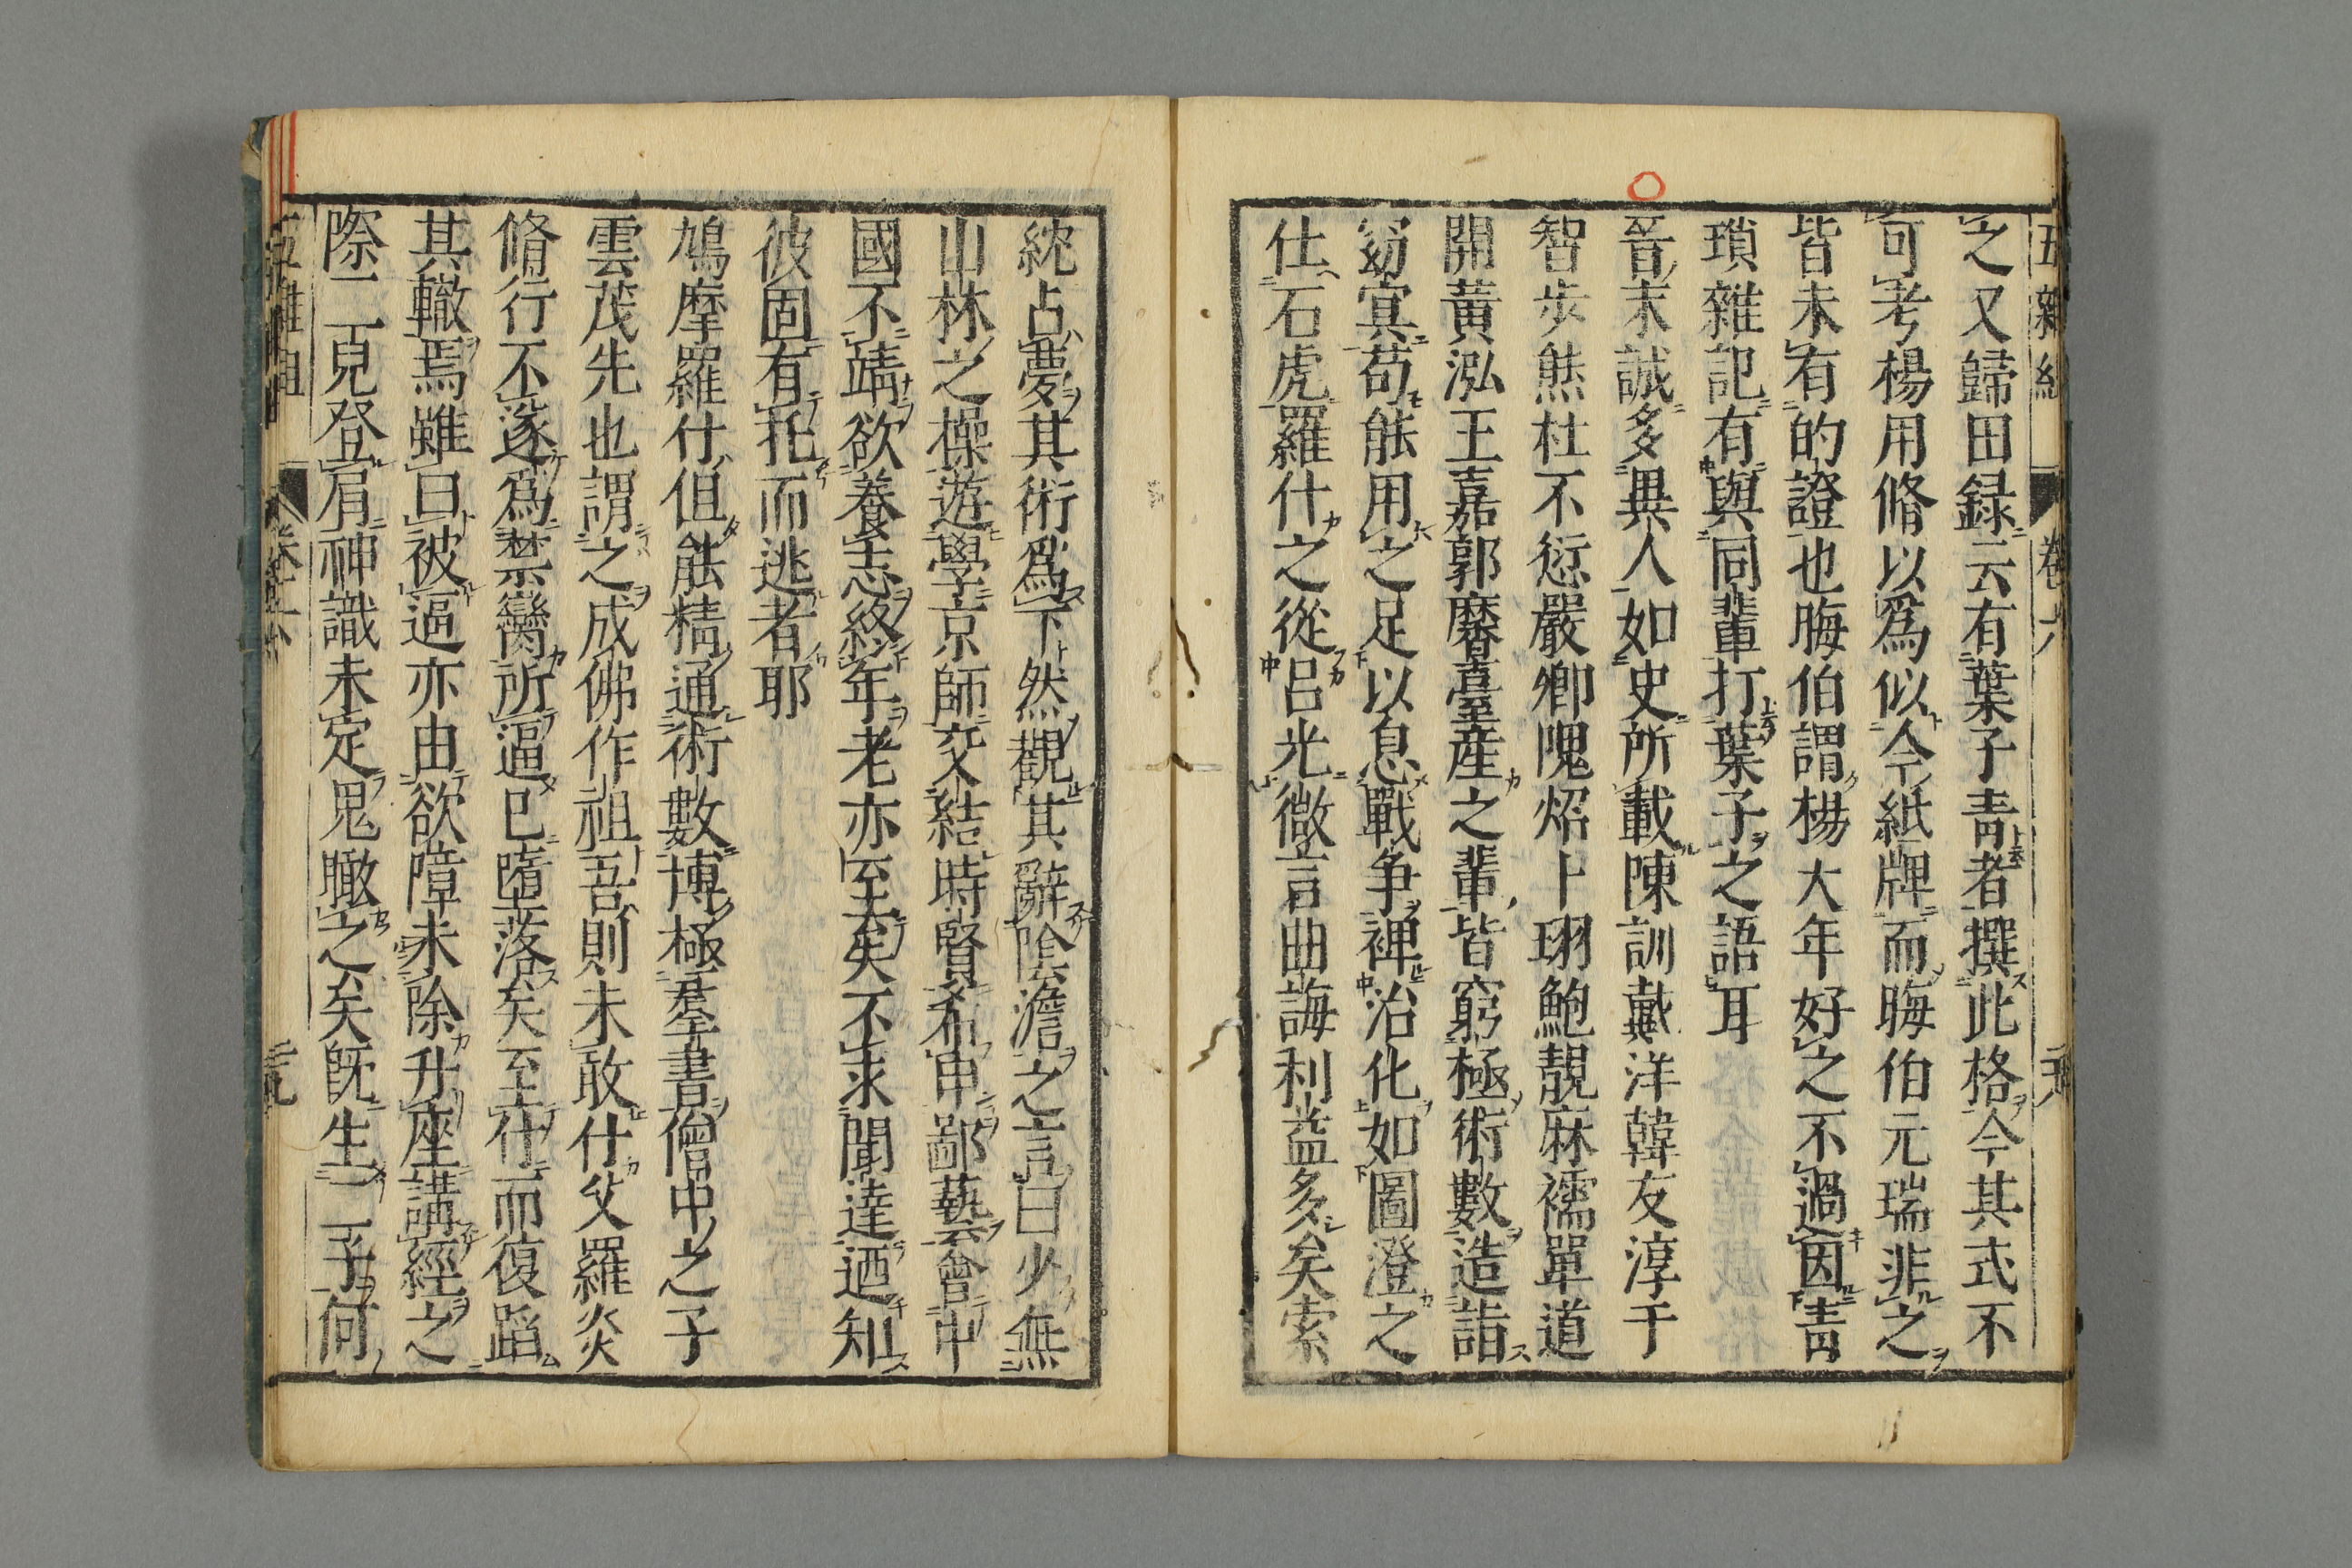 五雜組 卷六
之又歸田録云有葉子青者撰此格今其式不
可考楊用脩以爲似今紙牌而晦伯元瑞非之
皆未有的證也晦伯謂楊大年好之不過因青
瑣雜記有與同輩打葉子之語耳
晉末誠多異人如史所載陳訓戴洋韓友淳于
智步熊杜不愆嚴卿隗炤卜珝鮑靚麻襦單道
開黃泓王嘉郭黁臺産之輩皆窮極術數造詣
窈冥苟能用之足以息戰爭裨治化如圖澄之
仕石虎羅什之從呂光微言曲誨利益多矣索
紞占夢其術爲下然觀其辭陰澹之言曰少無
山林之操遊學京師交結時賢希申鄙藝會中
國不靖欲養志終年老亦至矣不求聞達迺知
彼固有托而逃者耶
鳩摩羅什但能精通術數博極羣書僧中之子
雲茂先也謂之成佛作祖吾則未敢什父羅炎
脩行不遂爲禁臠所逼已墮落矣至什而復蹈
其轍焉雖曰被逼亦由欲障未除升座講經之
際二兒登肩神識未定鬼瞰之矣旣生二子何
五雜組 卷六 三九